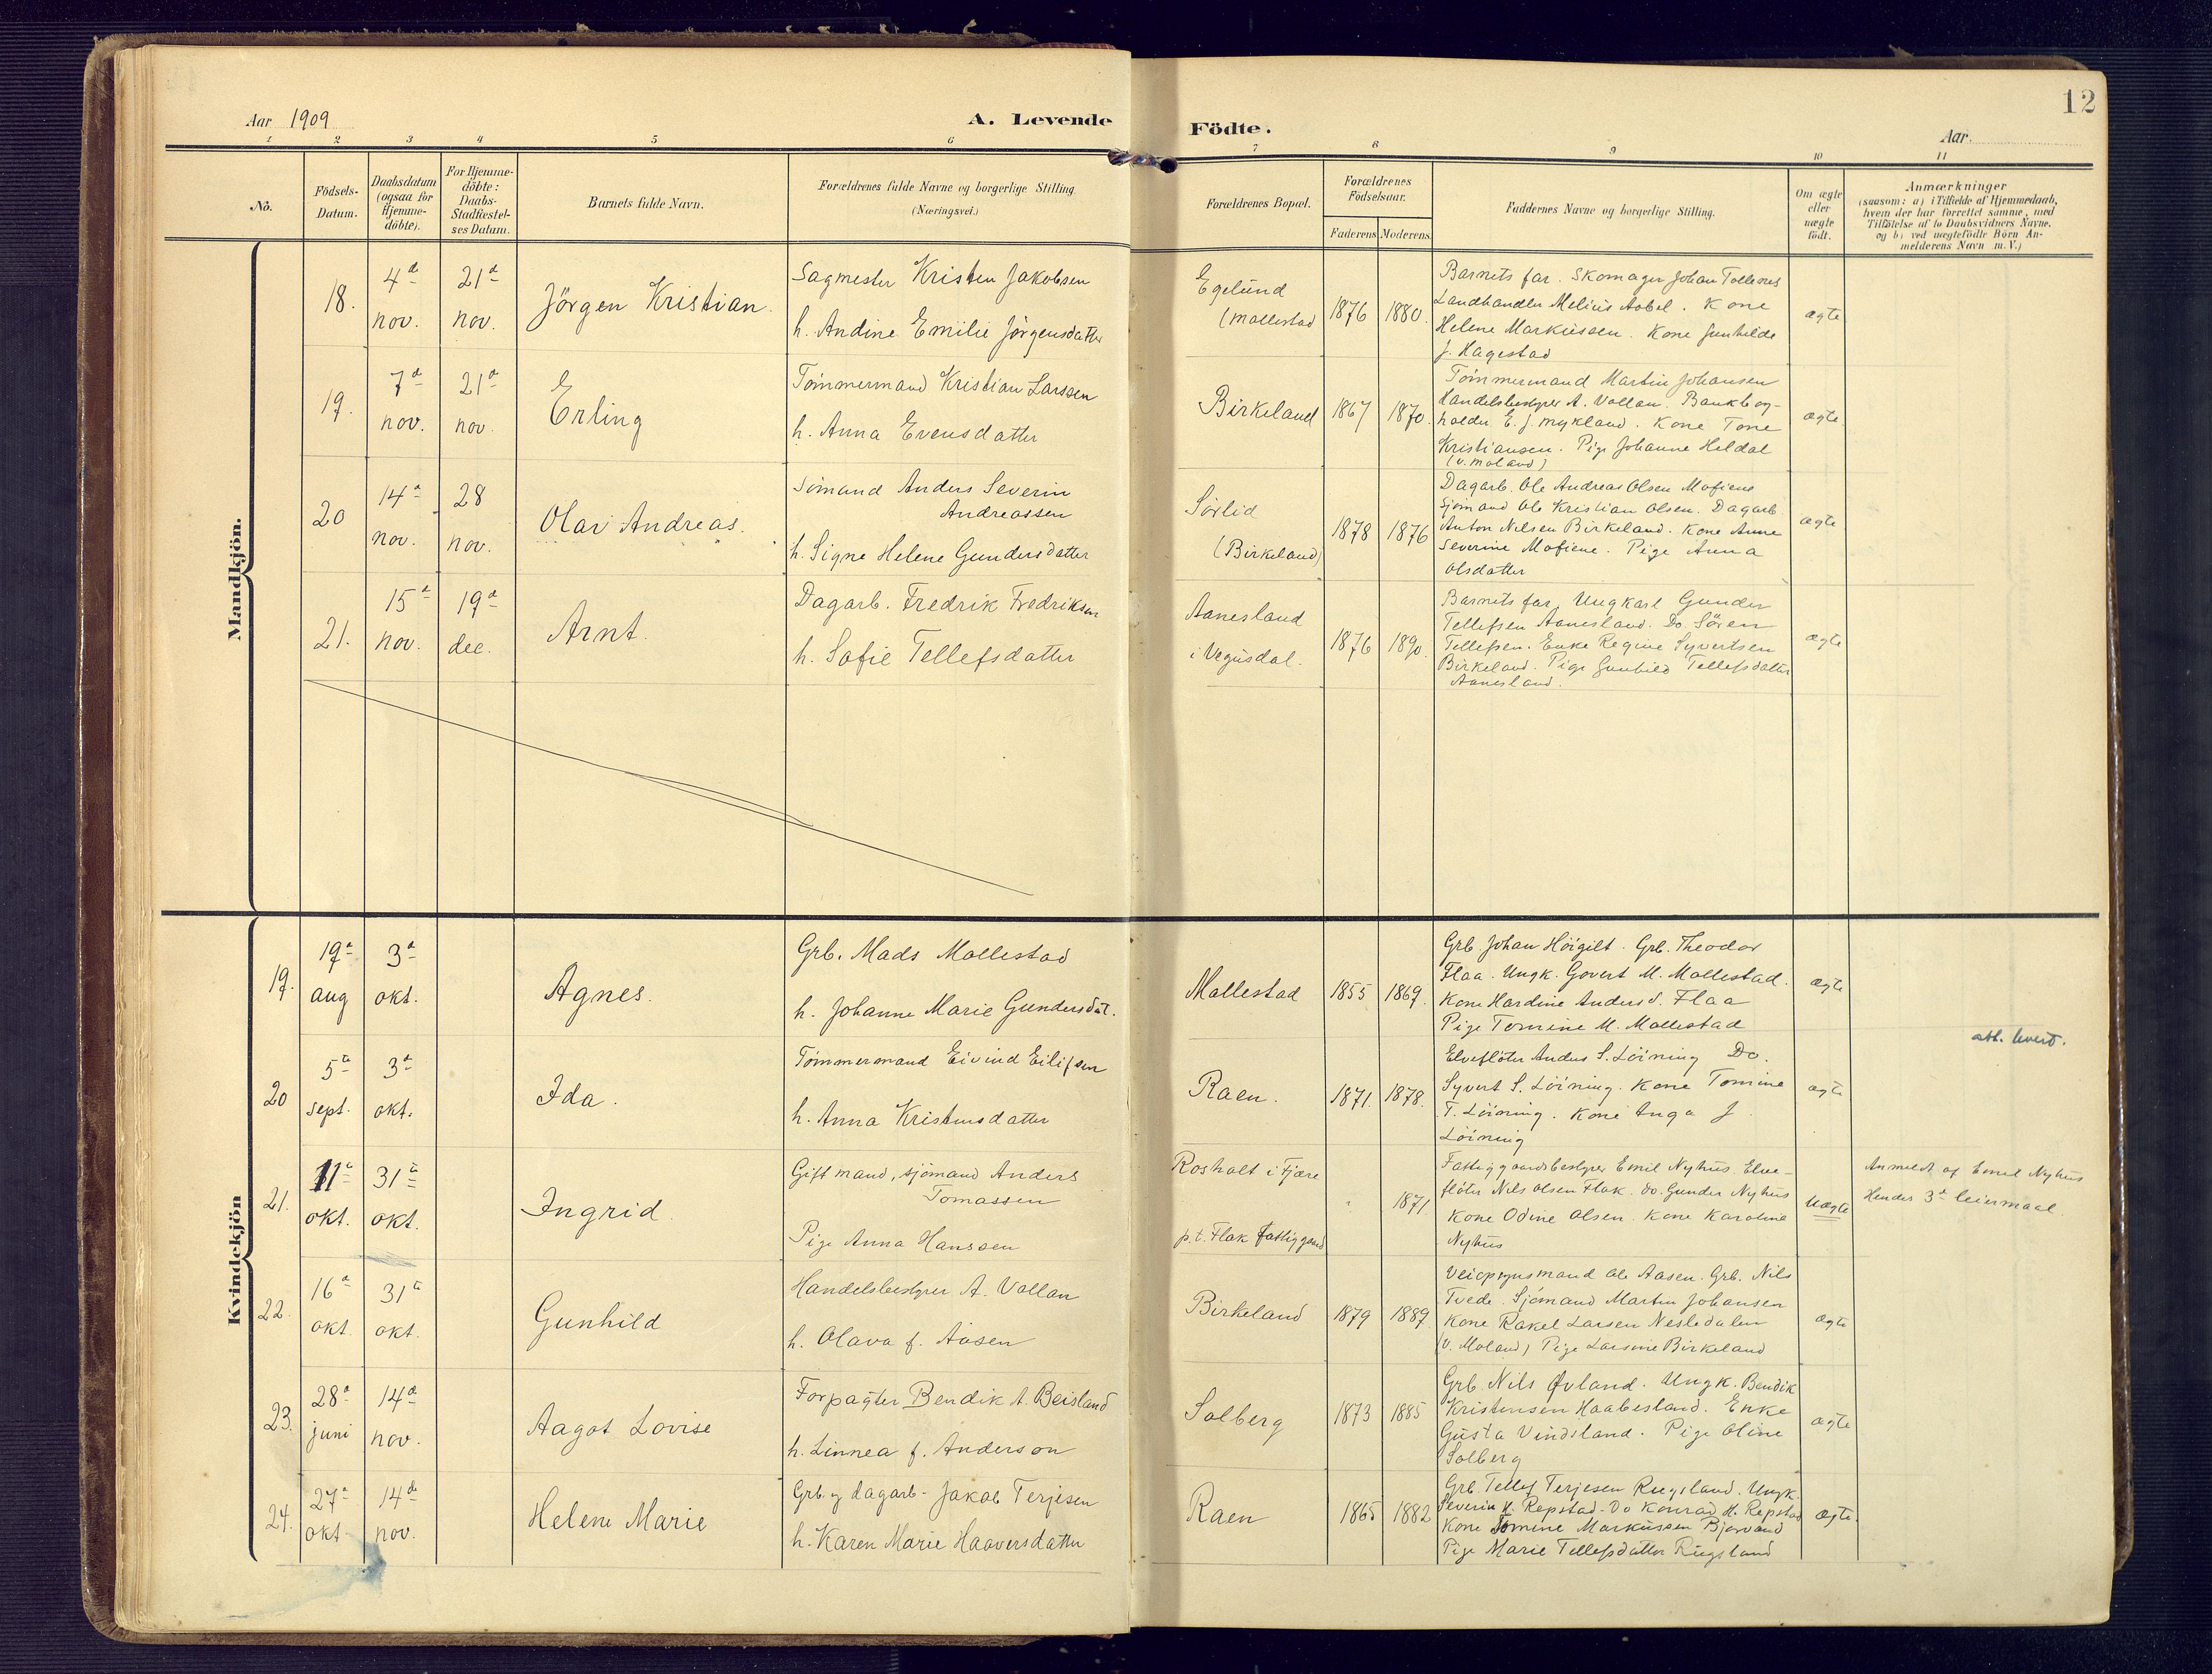 12
Aar 1909
A. Levende
Födte.
Aar.
1 2 3 4 5 6 7 8 9 10 11
No.
Födsels-
Datum.
Daabsdatum
(ogsaa for
Hjemme-
döbte).
For Hjemme-
döbte:
Daabs-
Stadfæstel-
ses Datum.
Barnets fulde Navn.
Forældrenes fulde Navne og borgerlige Stilling.
(Næringsvei.)
Forældrenes Bopæl.
Forældrenes
Födselsaar.
Faderens Moderens
Faddernes Navne og borgerlige Stilling.
Om ægte
eller
uægte
födt.
Anmærkninger
(saasom: a) i Tilfælde af Hjemmedaab,
hvem der har forrettet samme, med
Tilföielse af to Daabsvidners Navne,
og b) ved uægtefödte Börn An-
melderens Navn m. V.)
Mandkjön.
18.
4de
nov.
21de
nov.
Jörgen Kristian.
Sagmester Kristen Jakobsen
h. Andine Emilie Jörgensdatter
Egelund
(Mollestad
1876
1880.
Barnets far. Skomager Johan Tollesnes
Landhandler Melius Aabel. Kone
Helene Markussen. Kone Gunhilde
J. Hagestad
ægte
19.
7de
nov.
21de
nov.
Erling
Tömmermand Kristian Larssen
h. Anna Evensdatter
Birkeland
1867
1870.
Tömmermand Martin Johansen
Handelsbestyrer A. Vollan. Bankbog-
holder E. J. Mykland. Kone Tone
Kristiansen. Pige Johanne Heldal
(v. Moland)
ægte
20
14de
nov.
28
nov.
Olav Andreas.
Sömand Anders Severin
Andreassen
h. Signe Helene Gundersdatter
Sörlid
(Birkeland)
1878
1876
Dagarb. Ole Andreas Olsen Mofiene
Sjömand Ole Kristian Olsen. Dagarb
Anton Nilsen Birkeland. Kone Anne
Severine Mofiene. Pige Anna
Olsdatter
ægte
21.
15de
nov.
19de
dec.
Arnt.
Dagarb. Fredrik Fredriksen
h. Sofie Tellefsdatter
Aanesland
i Vegusdal.
1876
1890.
Barnets far, Ungkarl Gunder
Tellefsen Aanesland. Do Sören
Tellefsen. Enke Regine Syvertsen
Birkeland. Pige Gunhild Tellefsdatter
Aanesland.
ægte
Kvindekjön
19.
19de
aug
3de
okt.
Agnes.
Grb. Mads Mollestad
h. Johanne Marie Gundersdat.
Mollestad
1855
1869.
Grb. Johan Höigilt. Grb. Theodor
Flaa. Ungk. Govert M. Mollestad.
Kone Hardine Anders d. Flaa
Pige Tomine M. Mollestad
ægte
20
5te
sept.
3de
okt.
Ida.
Tömmermand Eivind Eilifsen
h. Anna Kristensdatter
Raen.
1871.
1878.
Elveflöter Anders S. Löining Do.
Syvert S. Löining. Kone Tomine
T. Löining. Kone Inga J.
Löining
ægte
att. levert.
21.
11te
okt.
31te
okt.
Ingrid
Gift mand, sjömand Anders
Tomassen
Pige Anna Hanssen
Rosholt i Fjære
p. t. Flak fattiggaard
"
1871
Fattiggaardsbestyrer Emil Nyhus. Elve-
flöter Nils Olsen Flak. do. Gunder Nyhus
Kone Odine Olsen. Kone Karoline
Nyhus
Uægte
Anmeldt af Emil Nyhus
Hendes 3de leiermaal.
22.
16de
okt.
31te
okt.
Gunhild
Handelsbestyrer A. Vollan
h. Olava f. Aasen
Birkeland
1879
1889
Veiopsynsmand Ole Aasen. Grb. Nils
Tvede. Sjömand Martin Johansen
Kone Rakel Larsen Nesledalen
(v. Moland) Pige Larsine Birkeland
ægte
23.
28de
juni
14de
nov.
Aagot Lovise
Forpagter Bendik A. Beisland
h. Linnea f. Anderson
Solberg
1873
1885
Grb Nils Øvland. Ungk. Bendik
Kristensen Haabesland. Enke
Gusta Vindsland. Pige Oline
Solberg
ægte
24.
27de
okt
14de
nov.
Helene Marie
Grb. og dagarb. Jakob Terjesen
h. Karen Marie Haaversdatter
Raen
1865
1882
Grb. Tellef Terjesen Rugsland. Ungk.
Severin H. Repstad. Do Konrad H. Repstad
Kone Tomine Markussen Bjorvand
Pige Marie Tellefsdatter Rugsland
ægte.